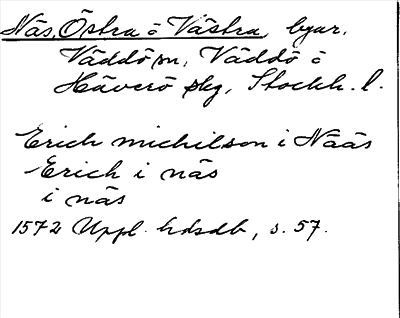 Näs, Östra o Västra, byar.
Väddö sn, Väddö o
Häverö skg, Stockh. l.
Erich michilson i Nääs
Erich i näs
i näs
1572 Uppl. hdsdb, s. 57.